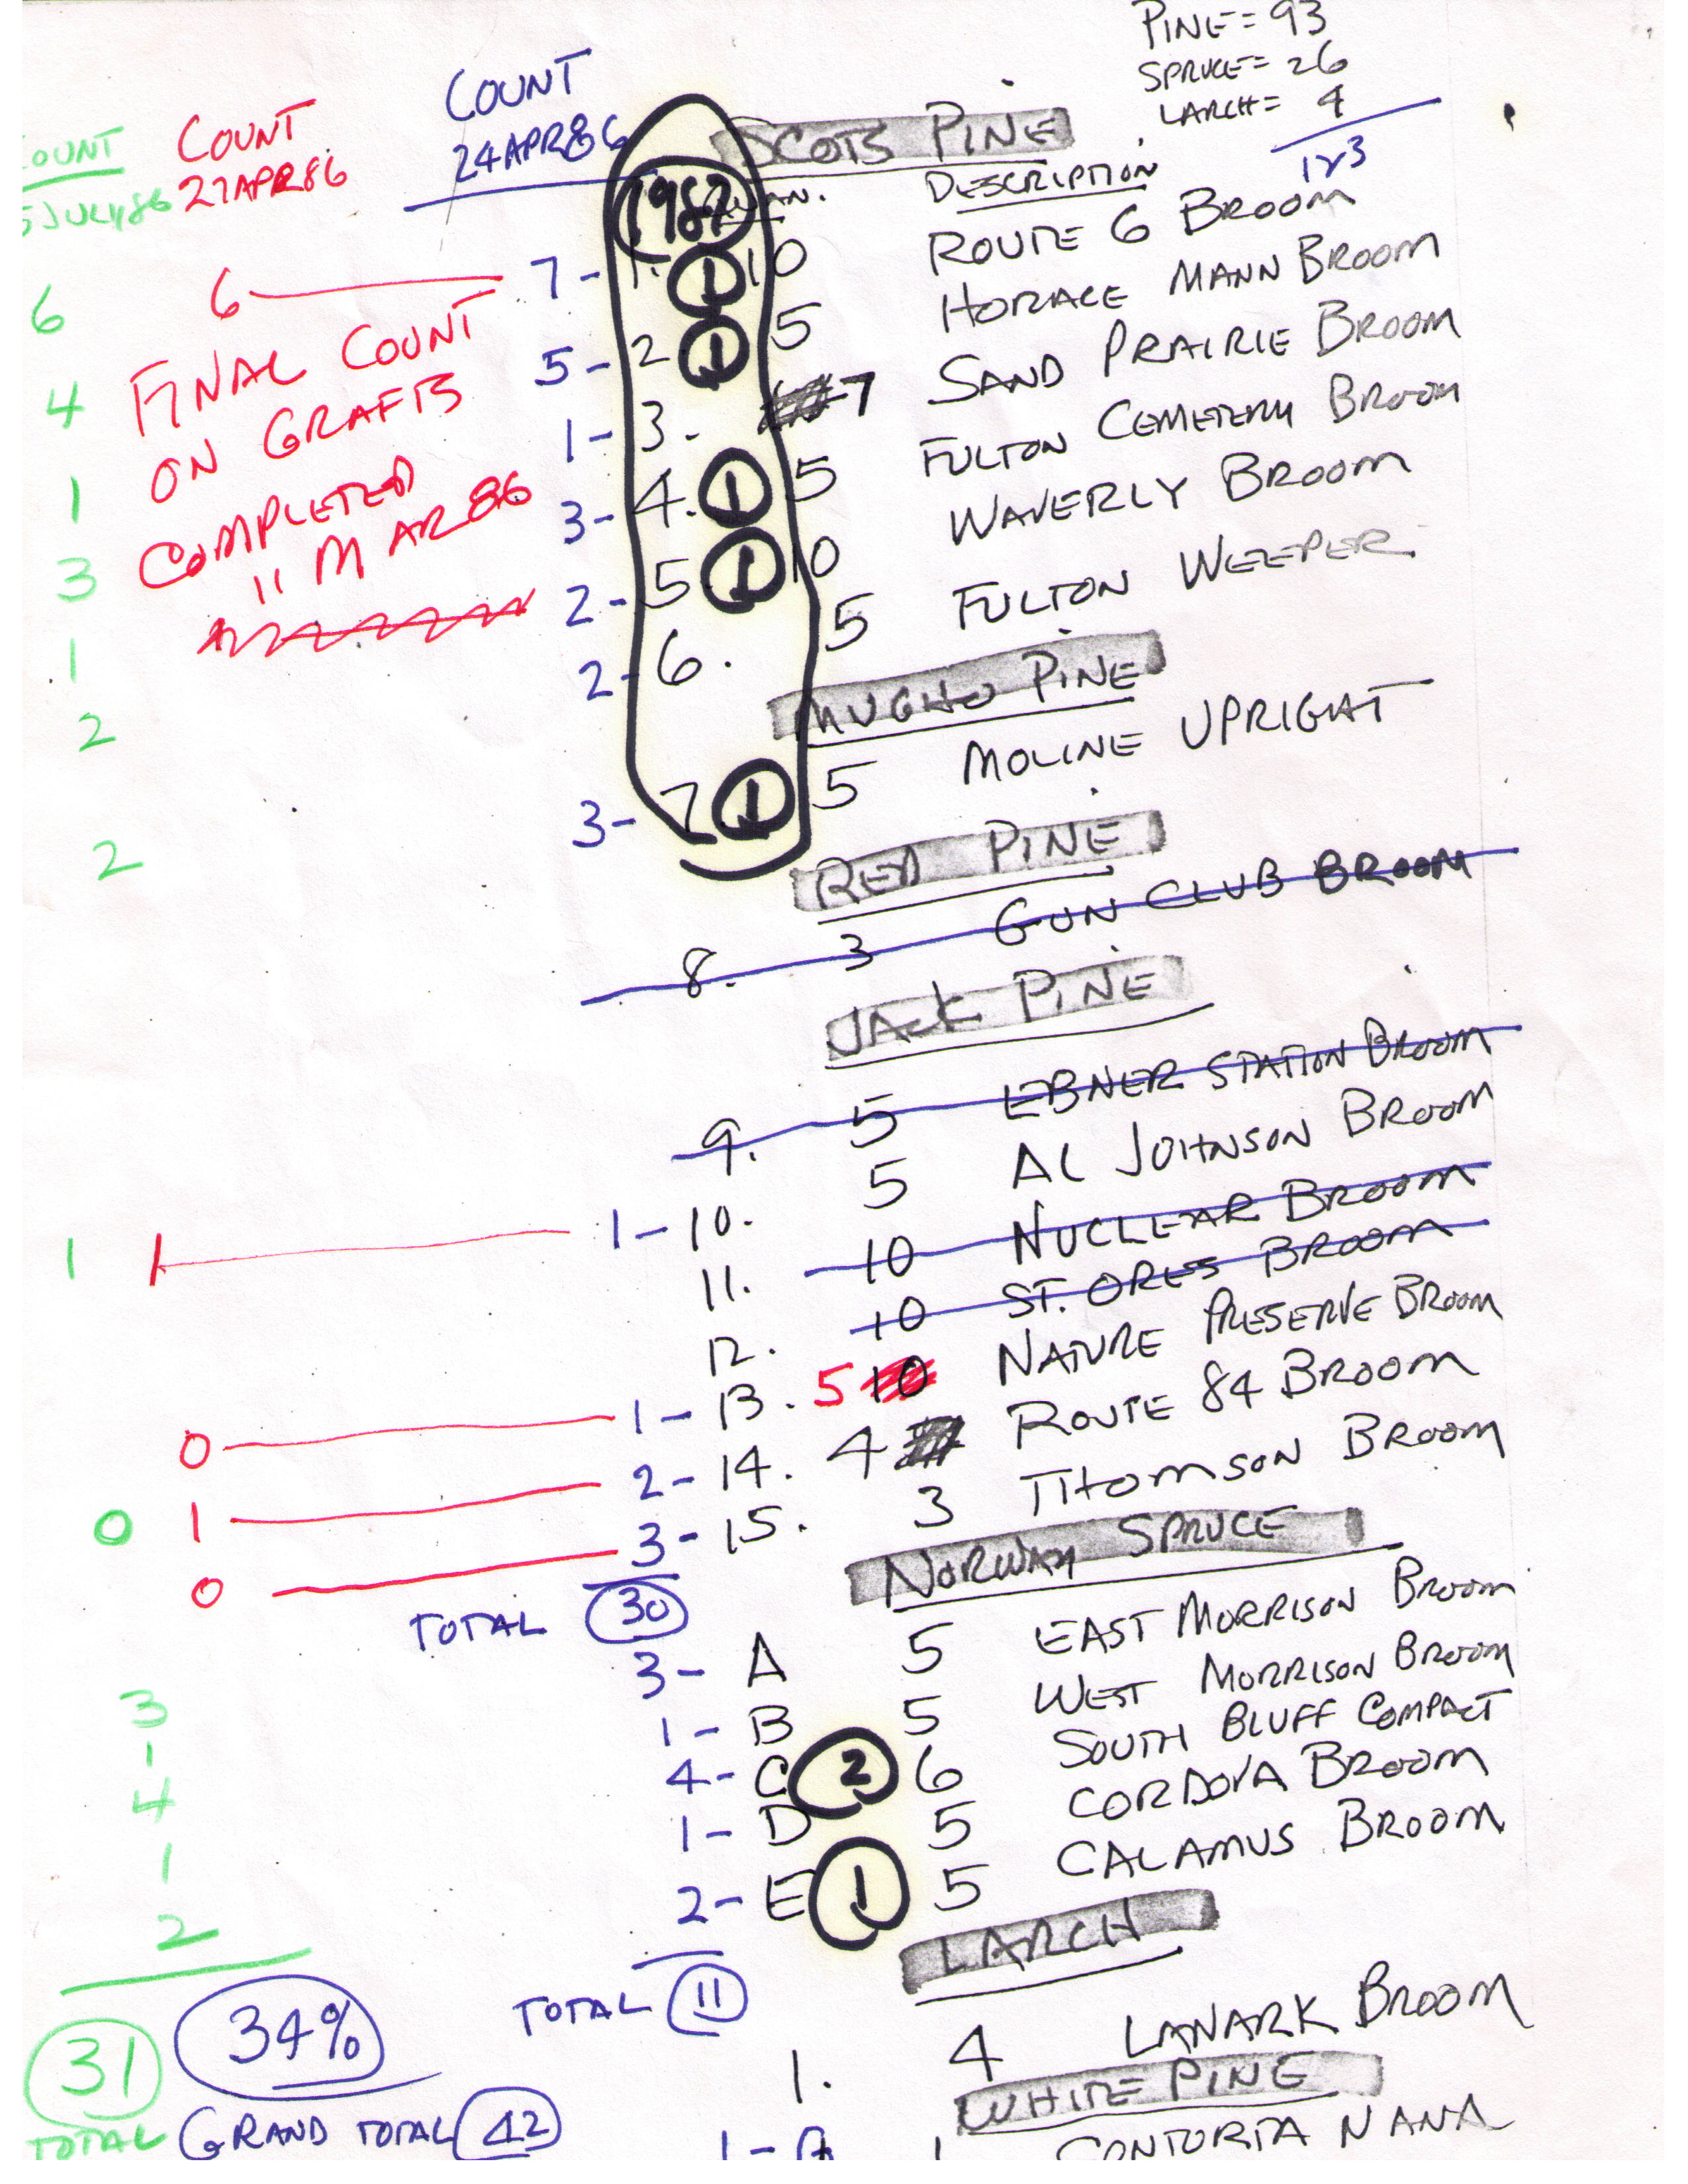 PINE = 93
SPRUCE = 26
LARCH = 4
123
COUNT
5 JULY 86
COUNT
27 APR 86
COUNT
24 APR 86
SCOTS PINE
1987 QUAN. DESCRIPTION
6 6 7 - 1. 1 10 ROUTE 6 BROOM
4 5 - 2 1 5 HORACE MANN BROOM
1 1 - 3. 7 SAND PRAIRIE BROOM
3 3 - 4. 1 5 FULTON CEMETERY BROOM
1 2 - 5 1 10 WAVERLY BROOM
2 2 - 6. 5 FULTON WEEPER
FINAL COUNT
ON GRAFTS
COMPLETED
11 MAR 86
MUGHO PINE
2 3 - 7 1 5 MOLINE UPRIGHT
RED PINE
8. 3 GUN CLUB BROOM
JACK PINE
9. 5 LEBNER STATION BROOM
1 1 1 - 10. 5 AL JOHNSON BROOM
11. 10 NUCLEAR BROOM
12. 10 ST. ORES BROOM
0 1 - 13. 5 10 NATURE PRESERVE BROOM
0 1 2 - 14. 4 ROUTE 84 BROOM
0 3 - 15. 3 THOMSON BROOM
TOTAL 30
NORWAY SPRUCE
3 3 - A 5 EAST MORRISON BROOM
1 1 - B 5 WEST MORRISON BROOM
4 4 - C 2 6 SOUTH BLUFF COMPACT
1 1 - D 5 CORDOVA BROOM
2 2 - E 1 5 CALAMUS BROOM
TOTAL 11
LARCH
1. 4 LANARK BROOM
31 34%
TOTAL GRAND TOTAL 42
WHITE PINE
1 - A 1 CONTORTA NANA